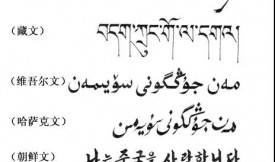 (藏文)
(维吾尔文) مەن جۇڭگونى سۆيىمەن
(哈萨克文) مەن جۇڭگونى سۇيەمىن
(朝鲜文) 나는 중국을 사랑합니다